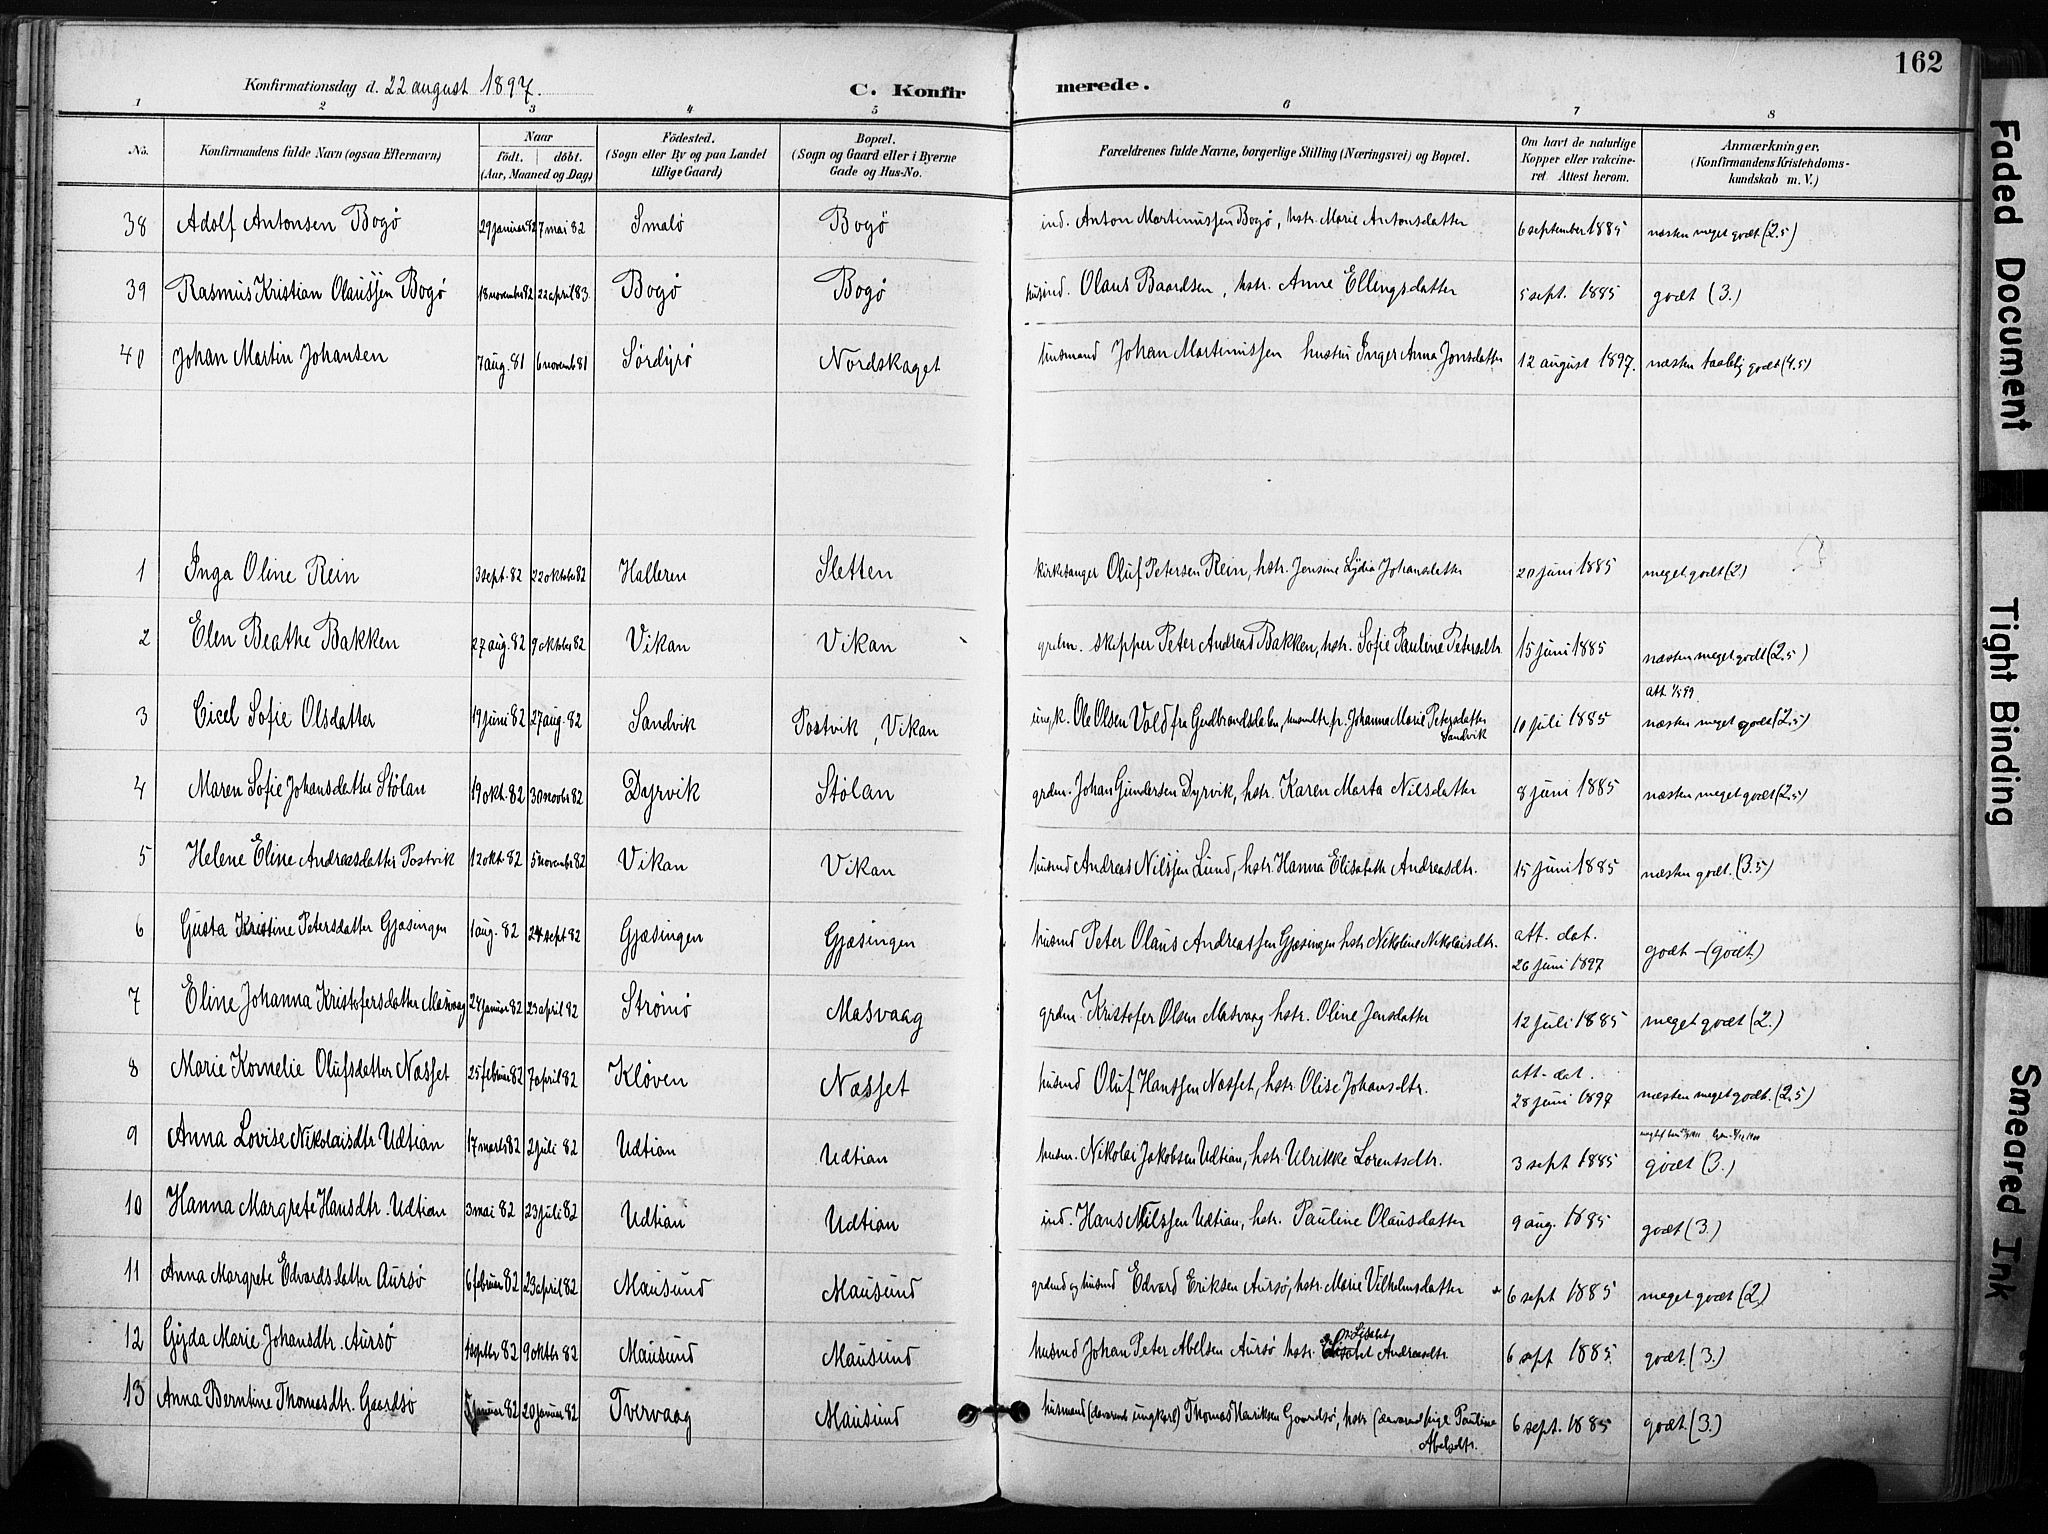 162
Konfirmationsdag d. 22 august 1897.
C. Konfirmerede.
1 2 3 4 5 6 7 8
No.
Konfirmandens fulde Navn (ogsaa Efternavn)
Naar
födt. döbt.
(Aar, Maaned og Dag)
Födested.
(Sogn eller By og paa Landet
tillige Gaard)
Bopæl.
(Sogn og Gaard eller i Byerne
Gade og Hus-No.
Forældrenes fulde Navne, borgerlige Stilling (Næringsvei) og Bopæl.
Om havt de naturlige
Kopper eller vakcine-
ret. Attest herom.
Anmærkninger.
(Konfirmandens Kristendoms-
kundskab m. V.)
38 Adolf Antonsen Bogø 29 januar 82 7 mai 82 Smalø Bogø ind. Anton Martinussen Bogø, hstr. Marie Antonsdatter 6 september 1885 næsten meget godt (2.5)
39 Rasmus Kristian Olaussen Bogø 18 novembr 82 22 april 83. Bogø Bogø husind. Olaus Baardsen, hstr. Anne Ellingsdatter 5 sept. 1885 godt (3.)
40 Johan Martin Johansen 7 aug. 81 6 novemb 81 Sørdyrø Nordskaget husmand Johan Martinussen hustru Inger Anna Jonsdatter 12 august 1897. næsten taalelig godt (4.5)
1 Inga Oline Rein 3 sept. 82 22 oktober 82 Halleren Sletten kirkesanger Oluf Petersen Rein, hstr. Jensine Lydia Johansdatter 20 juni 1885 meget godt (2)
2 Elen Beathe Bakken 27 aug. 82 9 oktober 82 Vikan Vikan grdm. skipper Peter Andreas Bakken, hstr. Sofie Pauline Petersdtr. 15 juni 1885 næsten meget godt (2.5)
att. 1/5 99
3 Cicel Sofie Olsdatter 19 juni 82 27 aug. 82 Sandvik Postvik, Vikan ungk. Ole Olsen Vold fra Gudbrandsdalen, husmdtr. pr. Johanna Marie Petersdatter 10 juli 1885 næsten meget godt (2.5)
Sandvik
4 Maren Sofie Johansdatter Stølan 19 okt. 82 30 novbr 82 Dyrvik Stølan grdm. Johan Gundersen Dyrvik, hstr. Karen Marta Nilsdatter 8 juni 1885 næsten meget godt (2.5)
5 Helene Eline Andreasdatter Postvik 12 okt. 82 5 novembr 82 Vikan Vikan husmd Andreas Nilssen Lund, hstr. Hanna Elisabeth Andreasdtr. 15 juni 1885 næsten godt. (3.5)
6 Gusta Kristine Petersdatter Gjæsingen 1 aug. 82 24 sept 82 Gjæsingen Gjæsingen husmd Peter Olaus Andreassen Gjæsingen hstr. Nikoline Nikolaisdtr. att. dat. godt – (godt)
26 juni 1897
7 Eline Johanna Kristofersdatter Masvaag 24 januar 82 23 april 82 Strømø Masvaag grdm. Kristofer Olsen Masvaag hstr. Oline Jensdatter 12 juli 1885 meget godt (2.)
8 Marie Kornelie Olufsdatter Næsset 25 februar 82 7 april 82 Kløven Næsset husmd Oluf Hanssen Næsset, hstr. Olise Johansdtr. att. dat.
28 juni 1897 næsten meget godt. (2.5)
9 Anna Lovise Nikolaisdtr Udtian 17 marts 82 2 juli 82 Udtian Udtian husm. Nikolai Jakobsen Udtian, hstr. Ulrikke Lorentsdtr. 3 sept 1885 godt (3.)
10 Hanna Margrete Hansdtr. Udtian 3 mai 82 23 juli 82 Udtian Udtian ind. Hans Nilssen Udtian, hstr. Pauline Olausdatter 9 aug. 1885 godt (3.)
11 Anna Margrete Edvardsdatter Aursø 6 februar 82 23 april 82 Mausund Mausund grdmd og husmd Edvard Eriksen Aursø, hstr. Marie Vilhelmsdatter 6 sept 1885 meget godt (2)
12 Gyda Marie Johansdtr. Aursø 1 septbr 82 9 oktbr 82 Mausund Mausund husmd Johan Peter Abelsen Aursø hstr. Elisabet Andreasdtr. 6 sept 1885. godt. (3.)
13 Anna Berntine Thomasdtr. Gaardsø januar 82 20 januar 82 Tvervaag Mausund husmand (daværende ungkarl) Thomas Henriksen Gaardsø, hstr. (daværende pige Pauline 6 sept. 1885 godt. (3.)
Abelsdtr.
Faded Document
Tight Binding
Smeared Ink